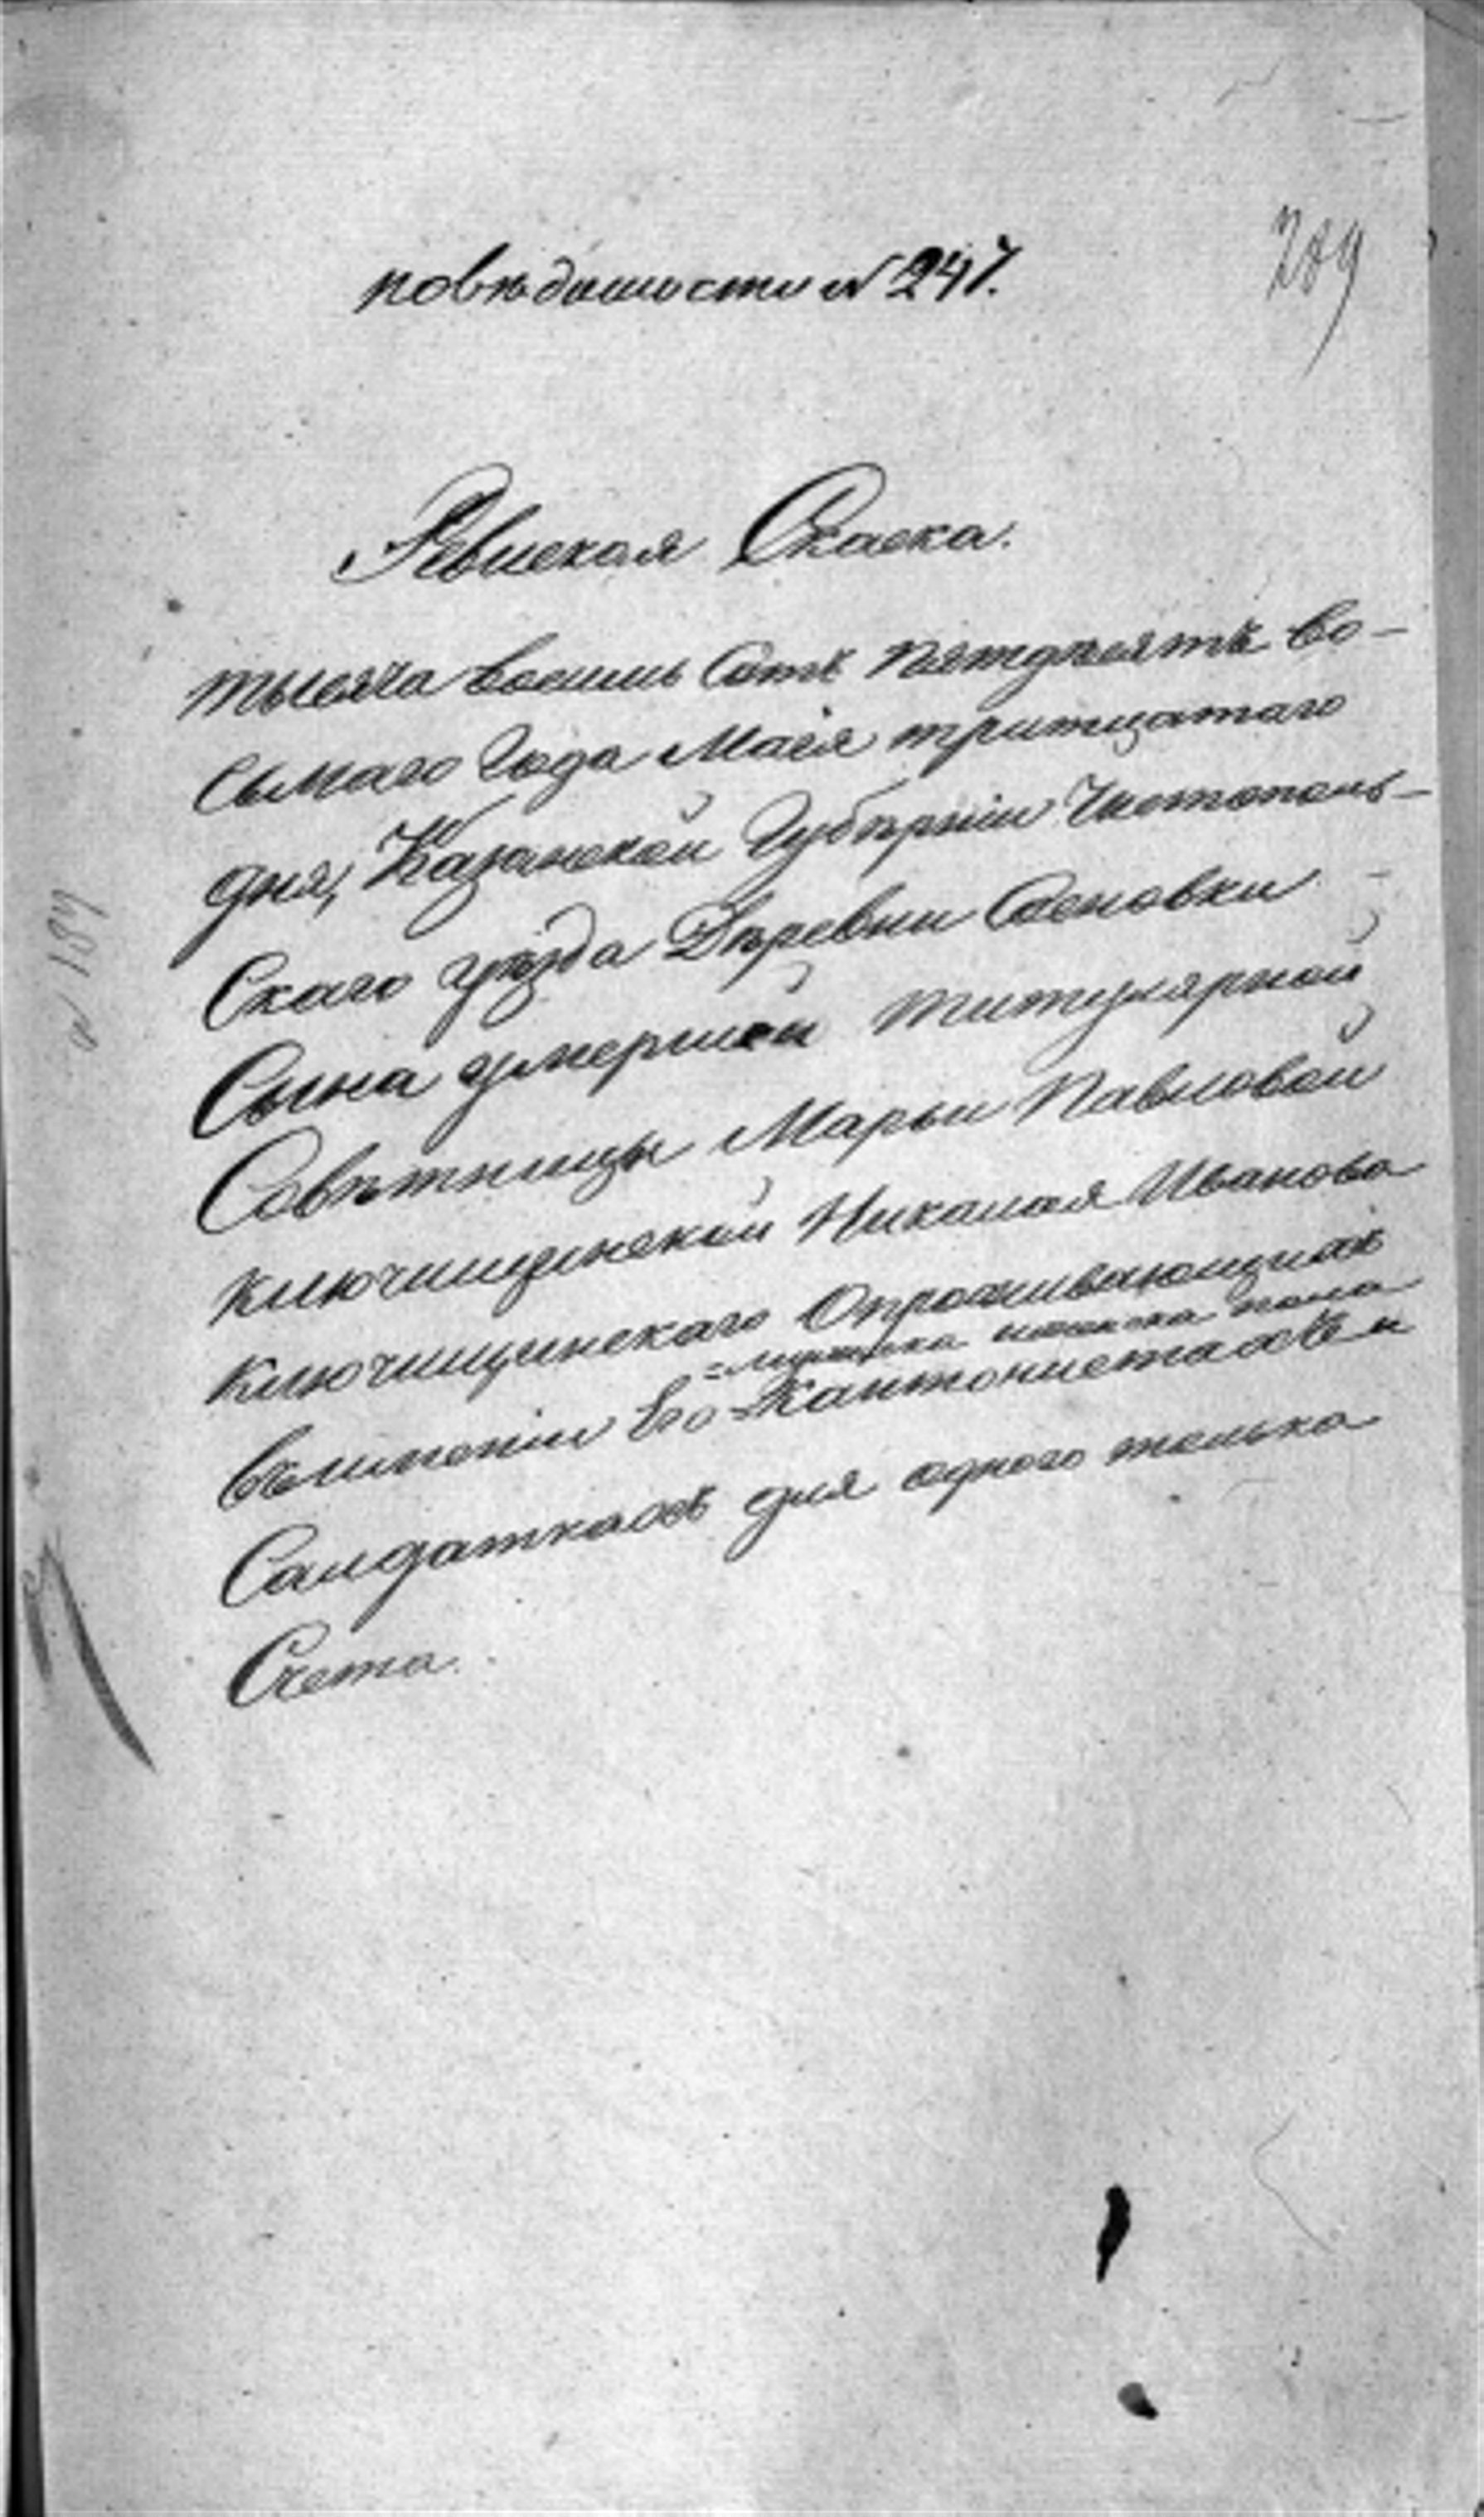 повѣдомости № 247.
289
Ревиская Скаска.
тысяча восимь Сотъ пятдѣсятъ во-
сьмаго Года Маія тритцатаго
дня, Казанской Губѣрніи Чистополь-
Скаго уѣзда Дѣревни Сосновки
Сына умершей титулярной
Совѣтницы Марьи Павловой
Ключищинской Николая Иванова
Ключищинскаго Опроживающихъ
Въимѣніи Его Кантонистахъ и
Салдаткахъ для одного толька
Счета.
№ 187